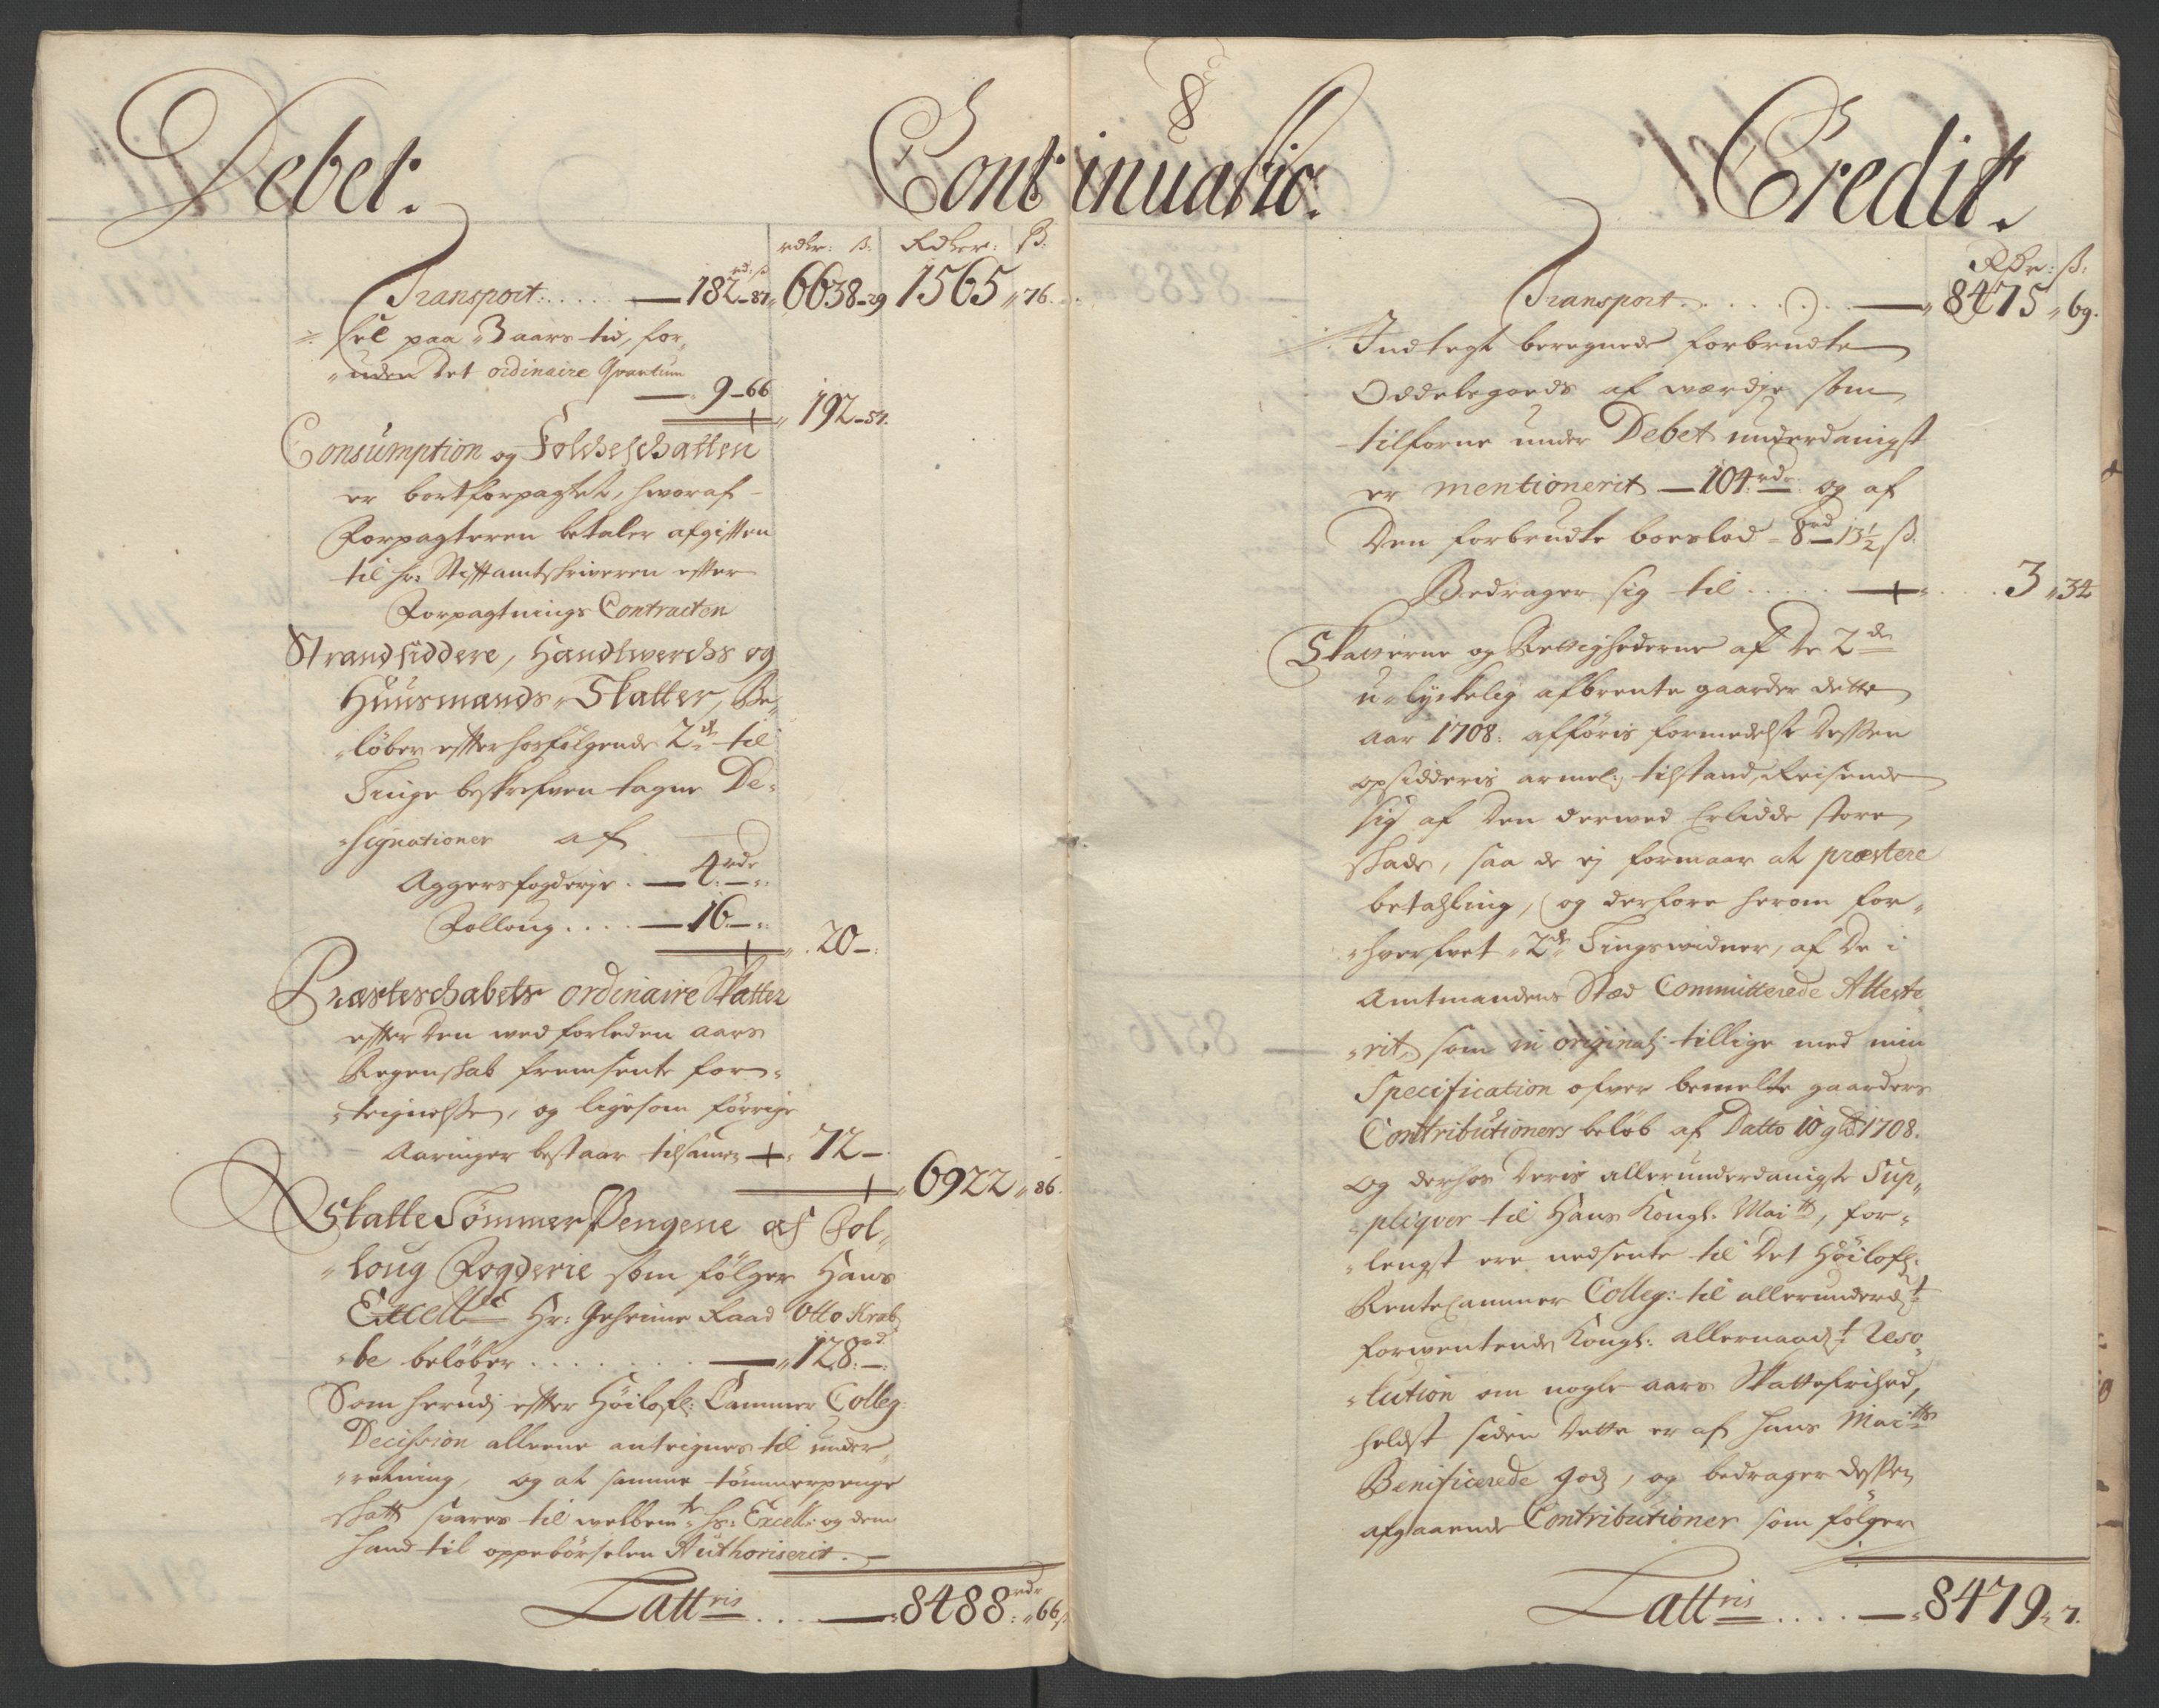 8
Debet. Continuatio. Credit.
rdlr: ß: Rdler: ß:
rd: ß
Transport: . . . . . — 182 – 87 „ 6638 – 29 1565 „ 76.
sel paa 3 aars tid, for„
„uden det ordinaire Qvantum
— 9 – 66
192 – 57.
Consumption og Folcheschatten
er bortforpagtet, hvoraf –
Forpagteren betaler afgifften
til hr: Stifftamtskriveren effter
Forpagtnings Contracten
Strandsiddere, Handtwerchs og
Huusmænds „ Skatter, Be„
„løber effter hosfølgende 2de til
Tinge beskrefven tagne De„
„signationer af
Aggersfogderje . — 4 rdr – „
Folloug . . . . — 16 – „
20 – :
Præsteschabets ordinaire Skatter
effter den med forleden aars
Regenskab fremsente for„
„teignelsse, og ligesom forrige
Aaringer bestaar tilsamen — 72 –
6922 „ 86.
Skatte Tømmer Pengene af Fol„
„loug Fogderie som følger Hans
Excellce Hr: Geheime Raad Otto Krab„
„be beløber . . . . . . . . — „ 128 rd –
Som herudj effter Høilofl: Cammer Colleg:
Decission alleene anteignes til under„
„retning, og at samme tømmerpenge
skatt svares til welbemte hs: Excell: og dem
hand til oppebørselen Authoriserit. –
Lattris . . . . — 8488 rdr „ 66 ß
Rdr: ß:
Transport . . . . . . — „ 8475 „ 69.
Indtegt beregnede forbrudte
Oddelsgoeds af werdje som
tilforne under Debet underdanigst
er mentionerit — 104 rdr og af
den forbrudte boeslod – 8 rd – 13½ ß.
Bedrager sig til . . . . . — . . . . 3 „ 34
Skatterne og Rettighederne af de 2de
u-lyckelig afbrente gaarder dette
aar 1708: afføris formedelst dessen
opsidderis armel: tilstand, Reisende
sig af den derwed Erlidde store
skade, saa de ej formaar at præstere
betahling, og derfore herom for„
„hverfvet 2de Tingswidner, af de i
Amtmandens Stæd Committerede Atteste„
„rit, som in originalj tillige med min
Specification ofver bemelte gaarders
Contributioners beløb af Datto 10 9br 1708.
og derhos deris allerunderdanigste Sup„
„pliqver til Hans Kongl. Maitt, for„
„lengst ere nedsente til det Høilofl:
RenteCammer Colleg: til allerunderdt
forwentende Kongl: allernaadt Reso„
„lution om nogle aars Skattefrihed,
heldst siden dette er af hans Maitts
Benificerede gods, og bedrager dessen
afgaaende Contributioner som følger
Lattris . . . . — „ 8479 „ 7.